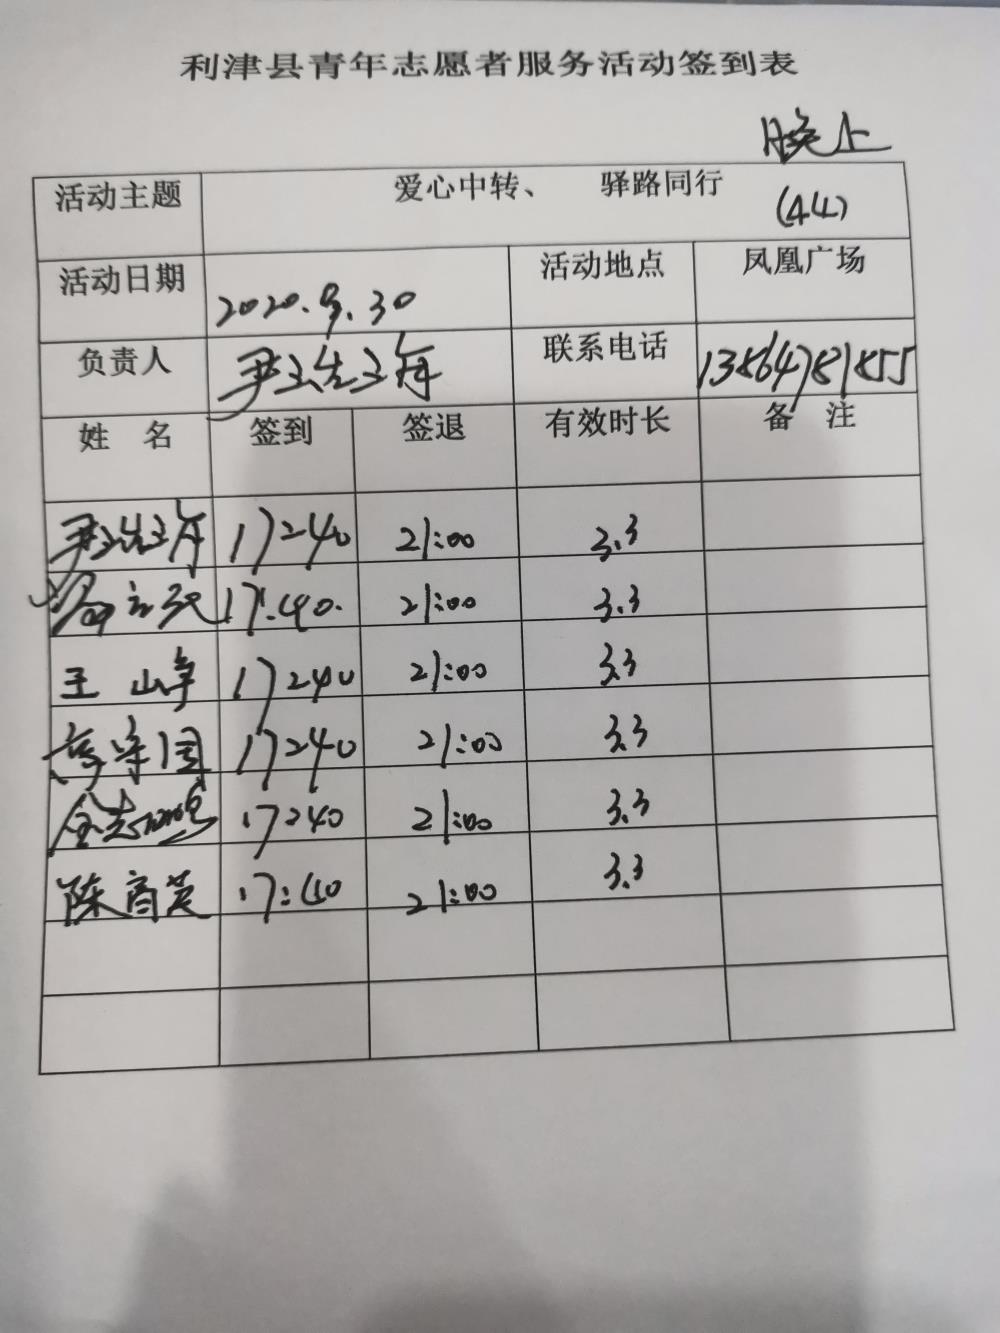 利津县青年志愿者服务活动签到表
晚上
活动主题 爱心中转、 驿路同行 (44)
活动日期 2020.9.30 活动地点 凤凰广场
负责人 联系电话 13864781855
姓 名 签到 签退 有效时长 备 注
17:40 21:00 3.3
17:40. 21:00 3.3
王 17:40 21:00 3.3
17:40 21:00 3.3
17:40 21:00 3.3
陈 英 17:40 21:00 3.3